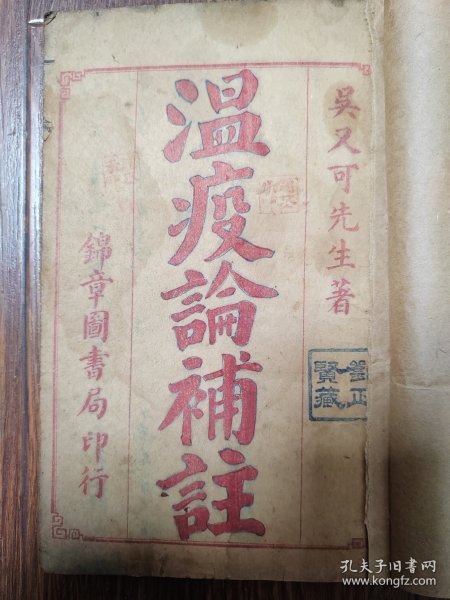 吳又可先生著
溫疫論補註
錦章圖書局印行
孔夫子旧书网
www.kongfz.com